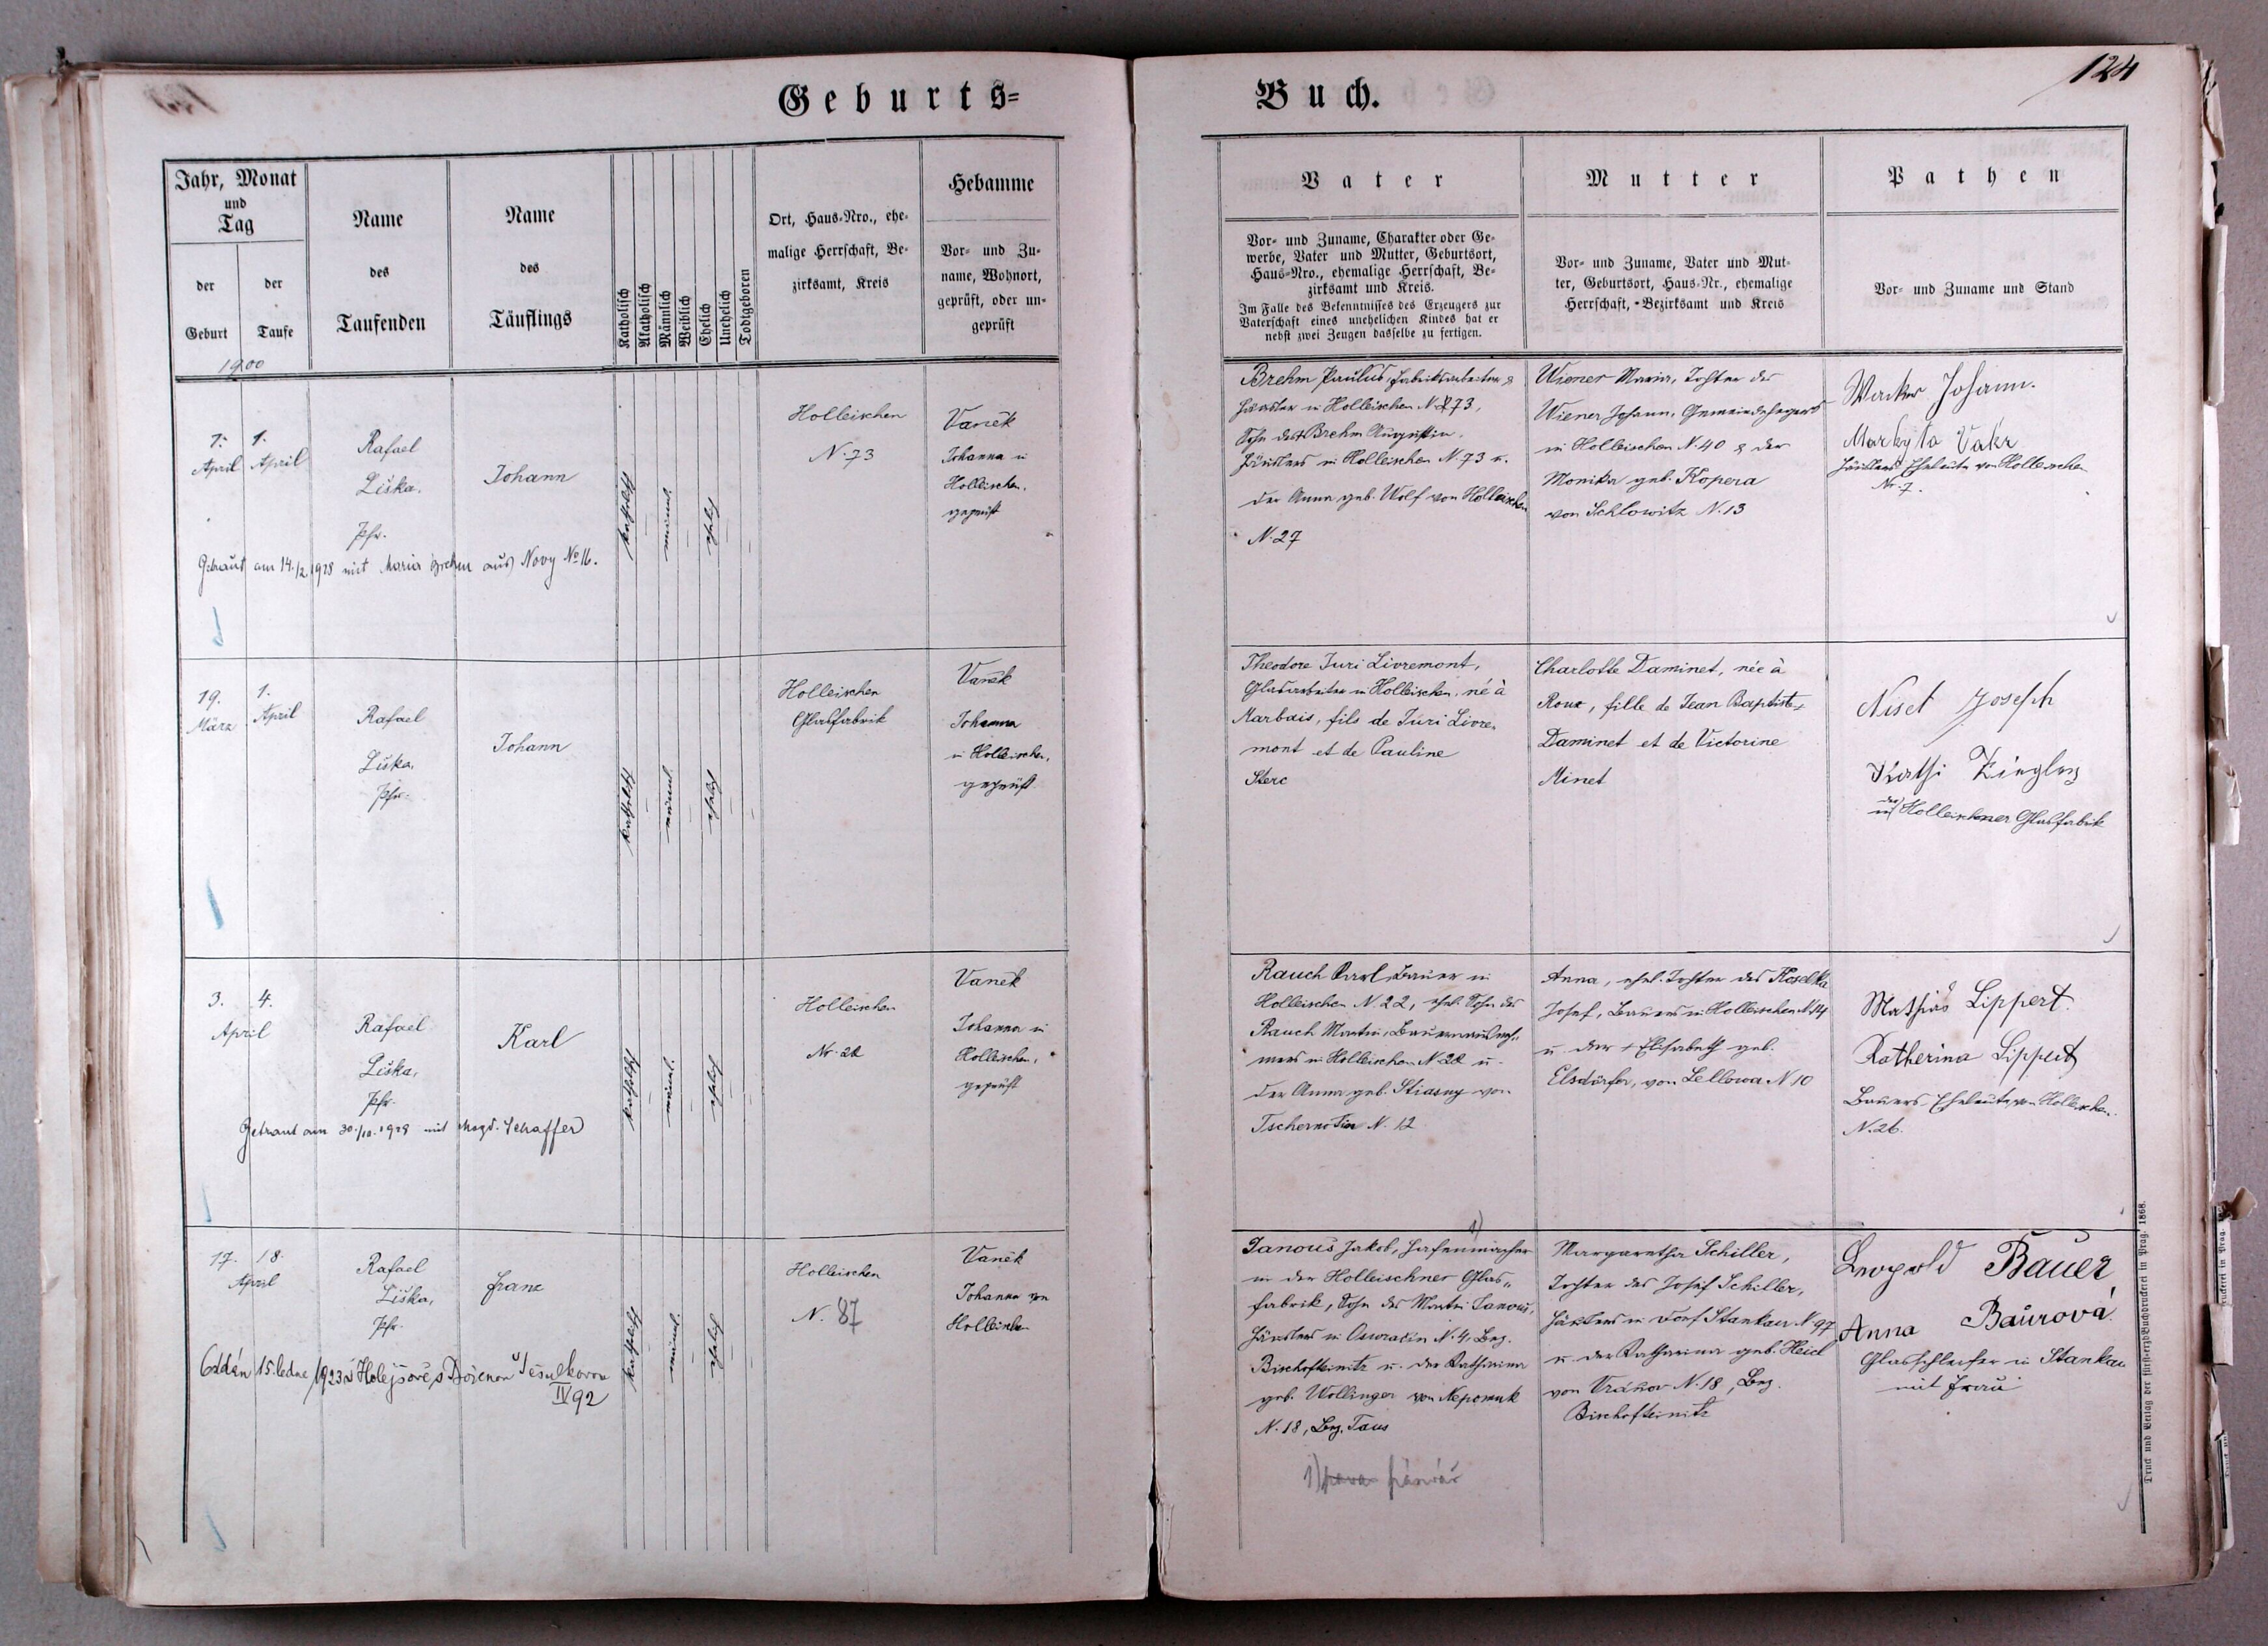 Geburts=
Buch.
124
Jahr, Monat
und
Tag
der
Geburt
der
Taufe
1900
Name
des
Taufenden
Name
des
Täuflings
Katholisch
Akatholisch
Männlich
Weiblich
Ehelich
Unehelich
Todtgeboren
Ort, Haus-Nro., ehe-
malige Herrschaft, Be-
zirksamt, Kreis
Hebamme
Vor- und Zu-
name, Wohnort,
geprüft, oder un-
geprüft
Vater
Vor- und Zuname, Charakter oder Ge-
werbe, Vater und Mutter, Geburtsort,
Haus-Nro., ehemalige Herrschaft, Be-
zirksamt und Kreis.
Im Falle des Bekenntnisses des Erzeugers zur
Vaterschaft eines unehelichen Kindes hat er
nebst zwei Zeugen dasselbe zu fertigen.
Mutter
Vor- und Zuname, Vater und Mut-
ter, Geburtsort, Haus-Nr., ehemalige
Herrschaft, -Bezirksamt und Kreis
Pathen
Vor- und Zuname und Stand
1. April
1. April
Rafael
Liška,
Pfr.
Johann
katholisch
männl.
ehelich
Holleischen
N. 73
Vanék
Johanna in
Holleischen,
geprüft
Getraut am 14./2 1928 mit Maria Brehm aus Novy No 16.
Brehm Paulus, Fabriksarbeiter &
Häusler in Holleischen N. 73,
Sohn des † Brehm Augustin,
Häuslers in Holleischen N. 73 u.
der Anna geb. Wolf von Holleischen
N. 27
Wiener Maria, Tochter des
Wiener Johann, Gemeindehegers
in Holleischen N. 40 & der
Monika geb. Kopera
von Schlowitz N. 13
Johann.
Markyta
Häuslers Eheleute von Holleischen
Nr. 7.
19. März
1. April
Rafael
Liška,
Pfr.
Johann
katholisch
männl.
ehelich
Holleischen
Glasfabrik
Vanék
Johanna
in Holleischen,
geprüft
Theodore Juri Livremont,
Glasarbeiter in Holleischen, né à
Marbais, fils de Juri Livre-
mont et de Pauline
Sterc
Charlotte Daminet, née à
Roux, fille de Jean Baptiste
Daminet et de Victorine
Minet
Niset Joseph
Kathi Ziegler
Holleischner Glasfabrik
3. April
4.
Rafael
Liška,
Pfr.
Karl
katholisch
männl.
ehelich
Holleischen
Nr. 22
Vanék
Johanna in
Holleischen,
geprüft
Getraut am 30./10. 1928 mit Magd. Schaffer
Rauch Karl, Bauer in
Holleischen N. 22, ehel. Sohn des
Rauch Martin, Bauernausneh-
mers in Holleischen N. 22 u.
der Anna geb. Stiasny von
Tschernotin N. 12
Anna, ehel. Tochter des Koselka
Josef, Bauers in Holleischen N. 14
u. der † Elisabeth geb.
Elsdörfer, von Lellowa N 10
Mathias Lippert
Katherina Lippert
Bauers-Eheleute von Holleischen
N. 26.
17. April
18.
Rafael
Liška,
Pfr.
Franz
katholisch
männl.
ehelich
Holleischen
N. 87
Vanék
Johanna von
Holleischen
Oddán 15. ledna 1923 v Holejšově s Boženou
IV 92
1)
Janouš Jakob, Hafenmacher
in der Holleischner Glas-
fabrik, Sohn des Martin Janouš,
Häuslers in Oswračin N. 4, Bez.
Bischofteinitz u. der Katharina
geb. Wollinger von Nepomuk
N. 18, Bez. Taus
Margaretha Schiller,
Tochter des Josef Schiller,
Häuslers in Dorf Stankau N. 97
u. der Katharina geb. Heidl
von Vránov N. 18, Bez.
Bischofteinitz
Leopold Bauer
Anna Baurová
Glasschleifer in Stankau
mit Frau
1)
Druck und Verlag der fürsterzb. Buchdruckerei in Prag. 1868.